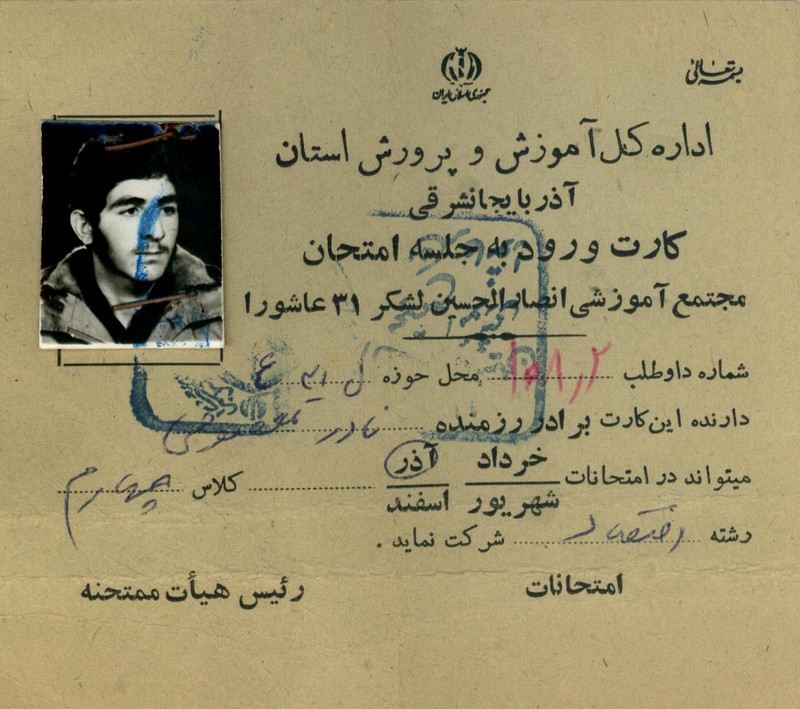 بسمه تعالی
جمهوری اسلامی ایران
اداره کل آموزش و پرورش استان
آذربایجانشرقی
کارت ورود به جلسه امتحان
مجتمع آموزشی انصارالحسین لشکر ۳۱ عاشورا
شماره داوطلب محل حوزه
دارنده این کارت برادر رزمنده نادر
میتواند در امتحانات خرداد آذر
شهریور اسفند کلاس چهارم
رشته اقتصاد شرکت نماید .
امتحانات رئیس هیأت ممتحنه